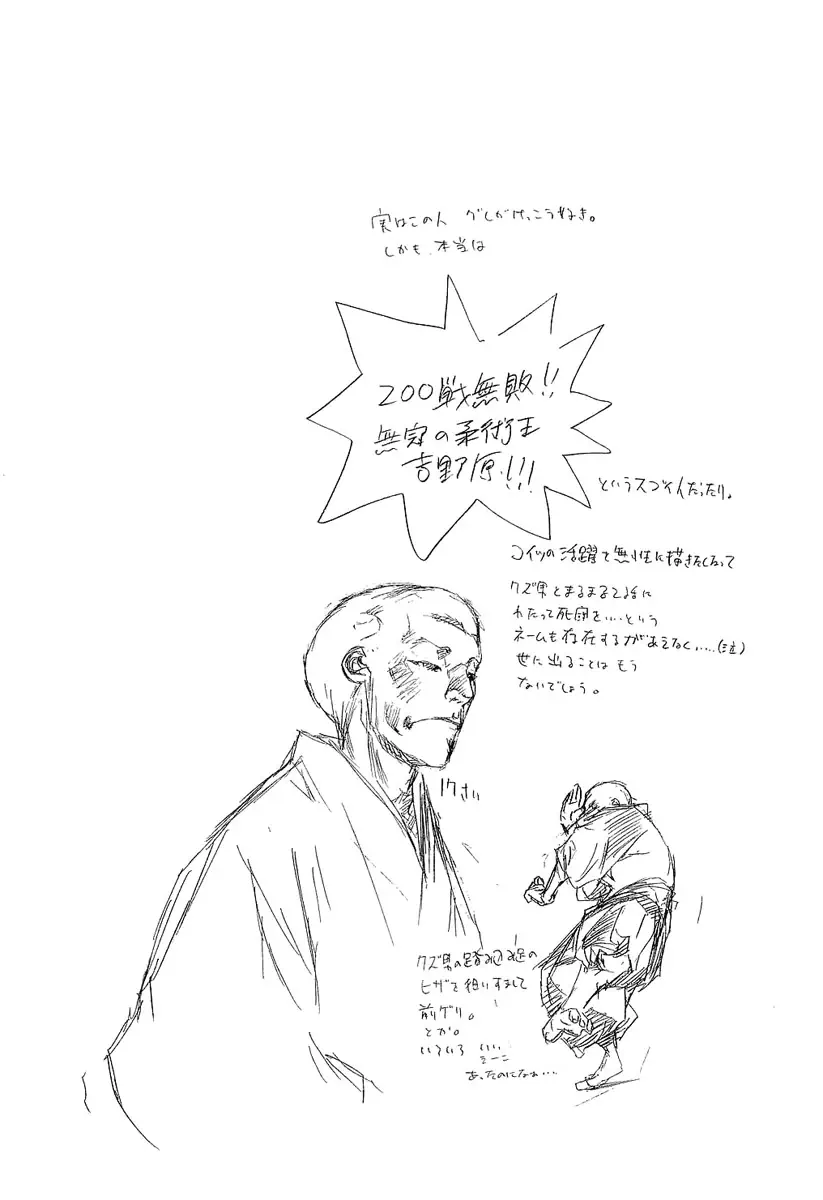 実はこの人
しかも、本当は
200戦無敗!!
無冠の柔術王
吉野原!!!
というスゴイ人だったり。
コイツの活躍で無性に描きたくなって
クズ男とまるまる2話に
わたって死闘を...という
ネームも存在するがあえなく.....(泣)
世に出ることはもう
ないでしょう。
17さい
クズ男の踏み込み足の
ヒザを狙いすまして
前ゲリ。
とか。
いろいろ いい
あったのになぁ...